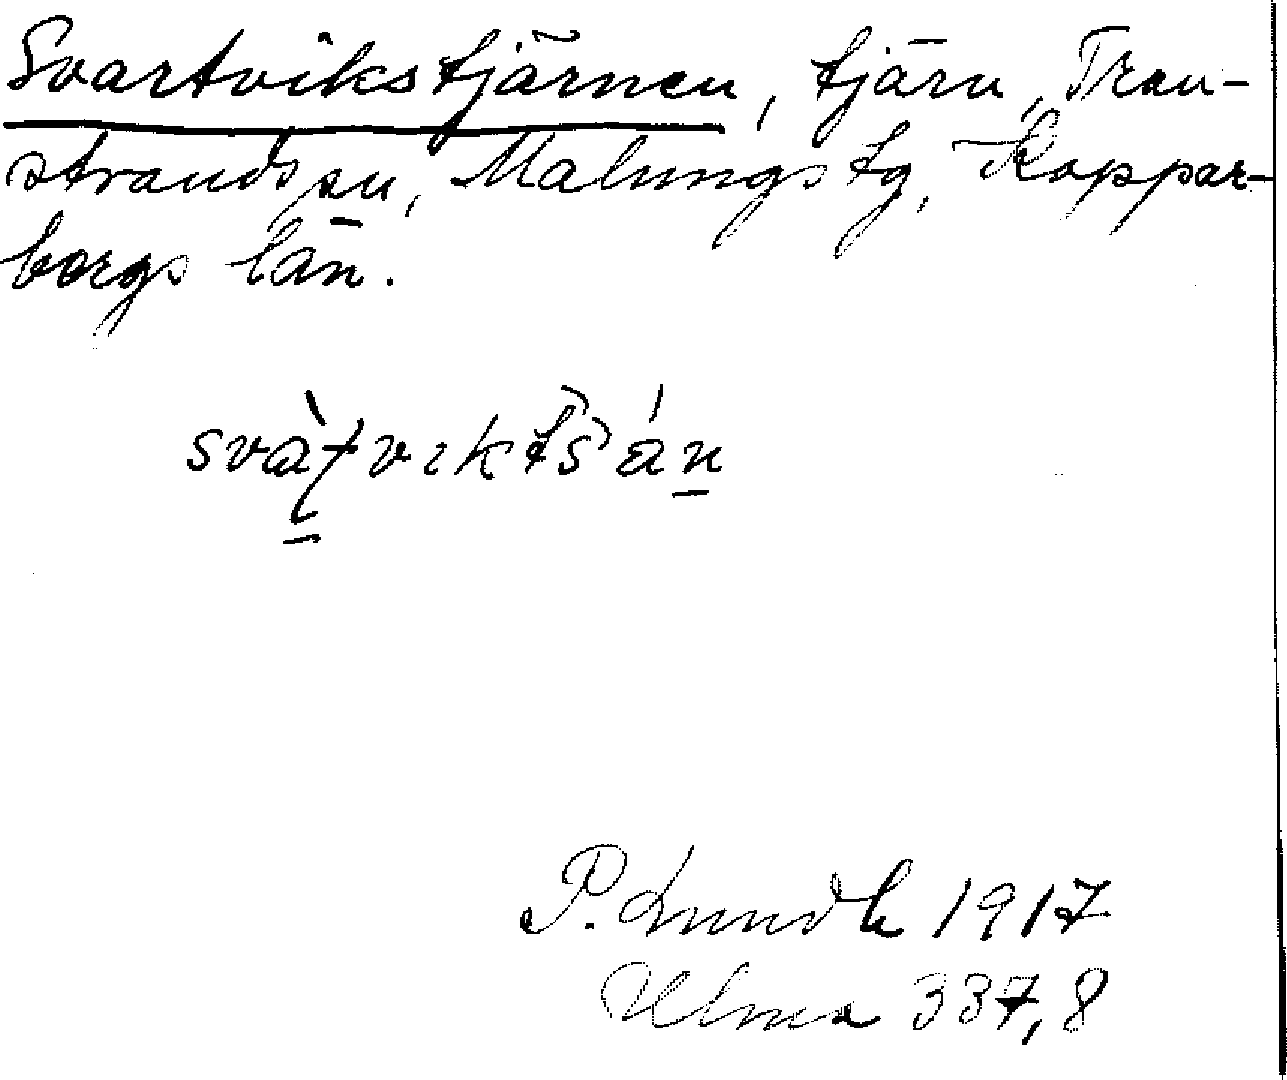 Svartvikstjärnen, tjärn, Tran-
strands sn, Malungs tg, Koppar-
borgs län.
P. Lundh 1917
Ulma 337,8